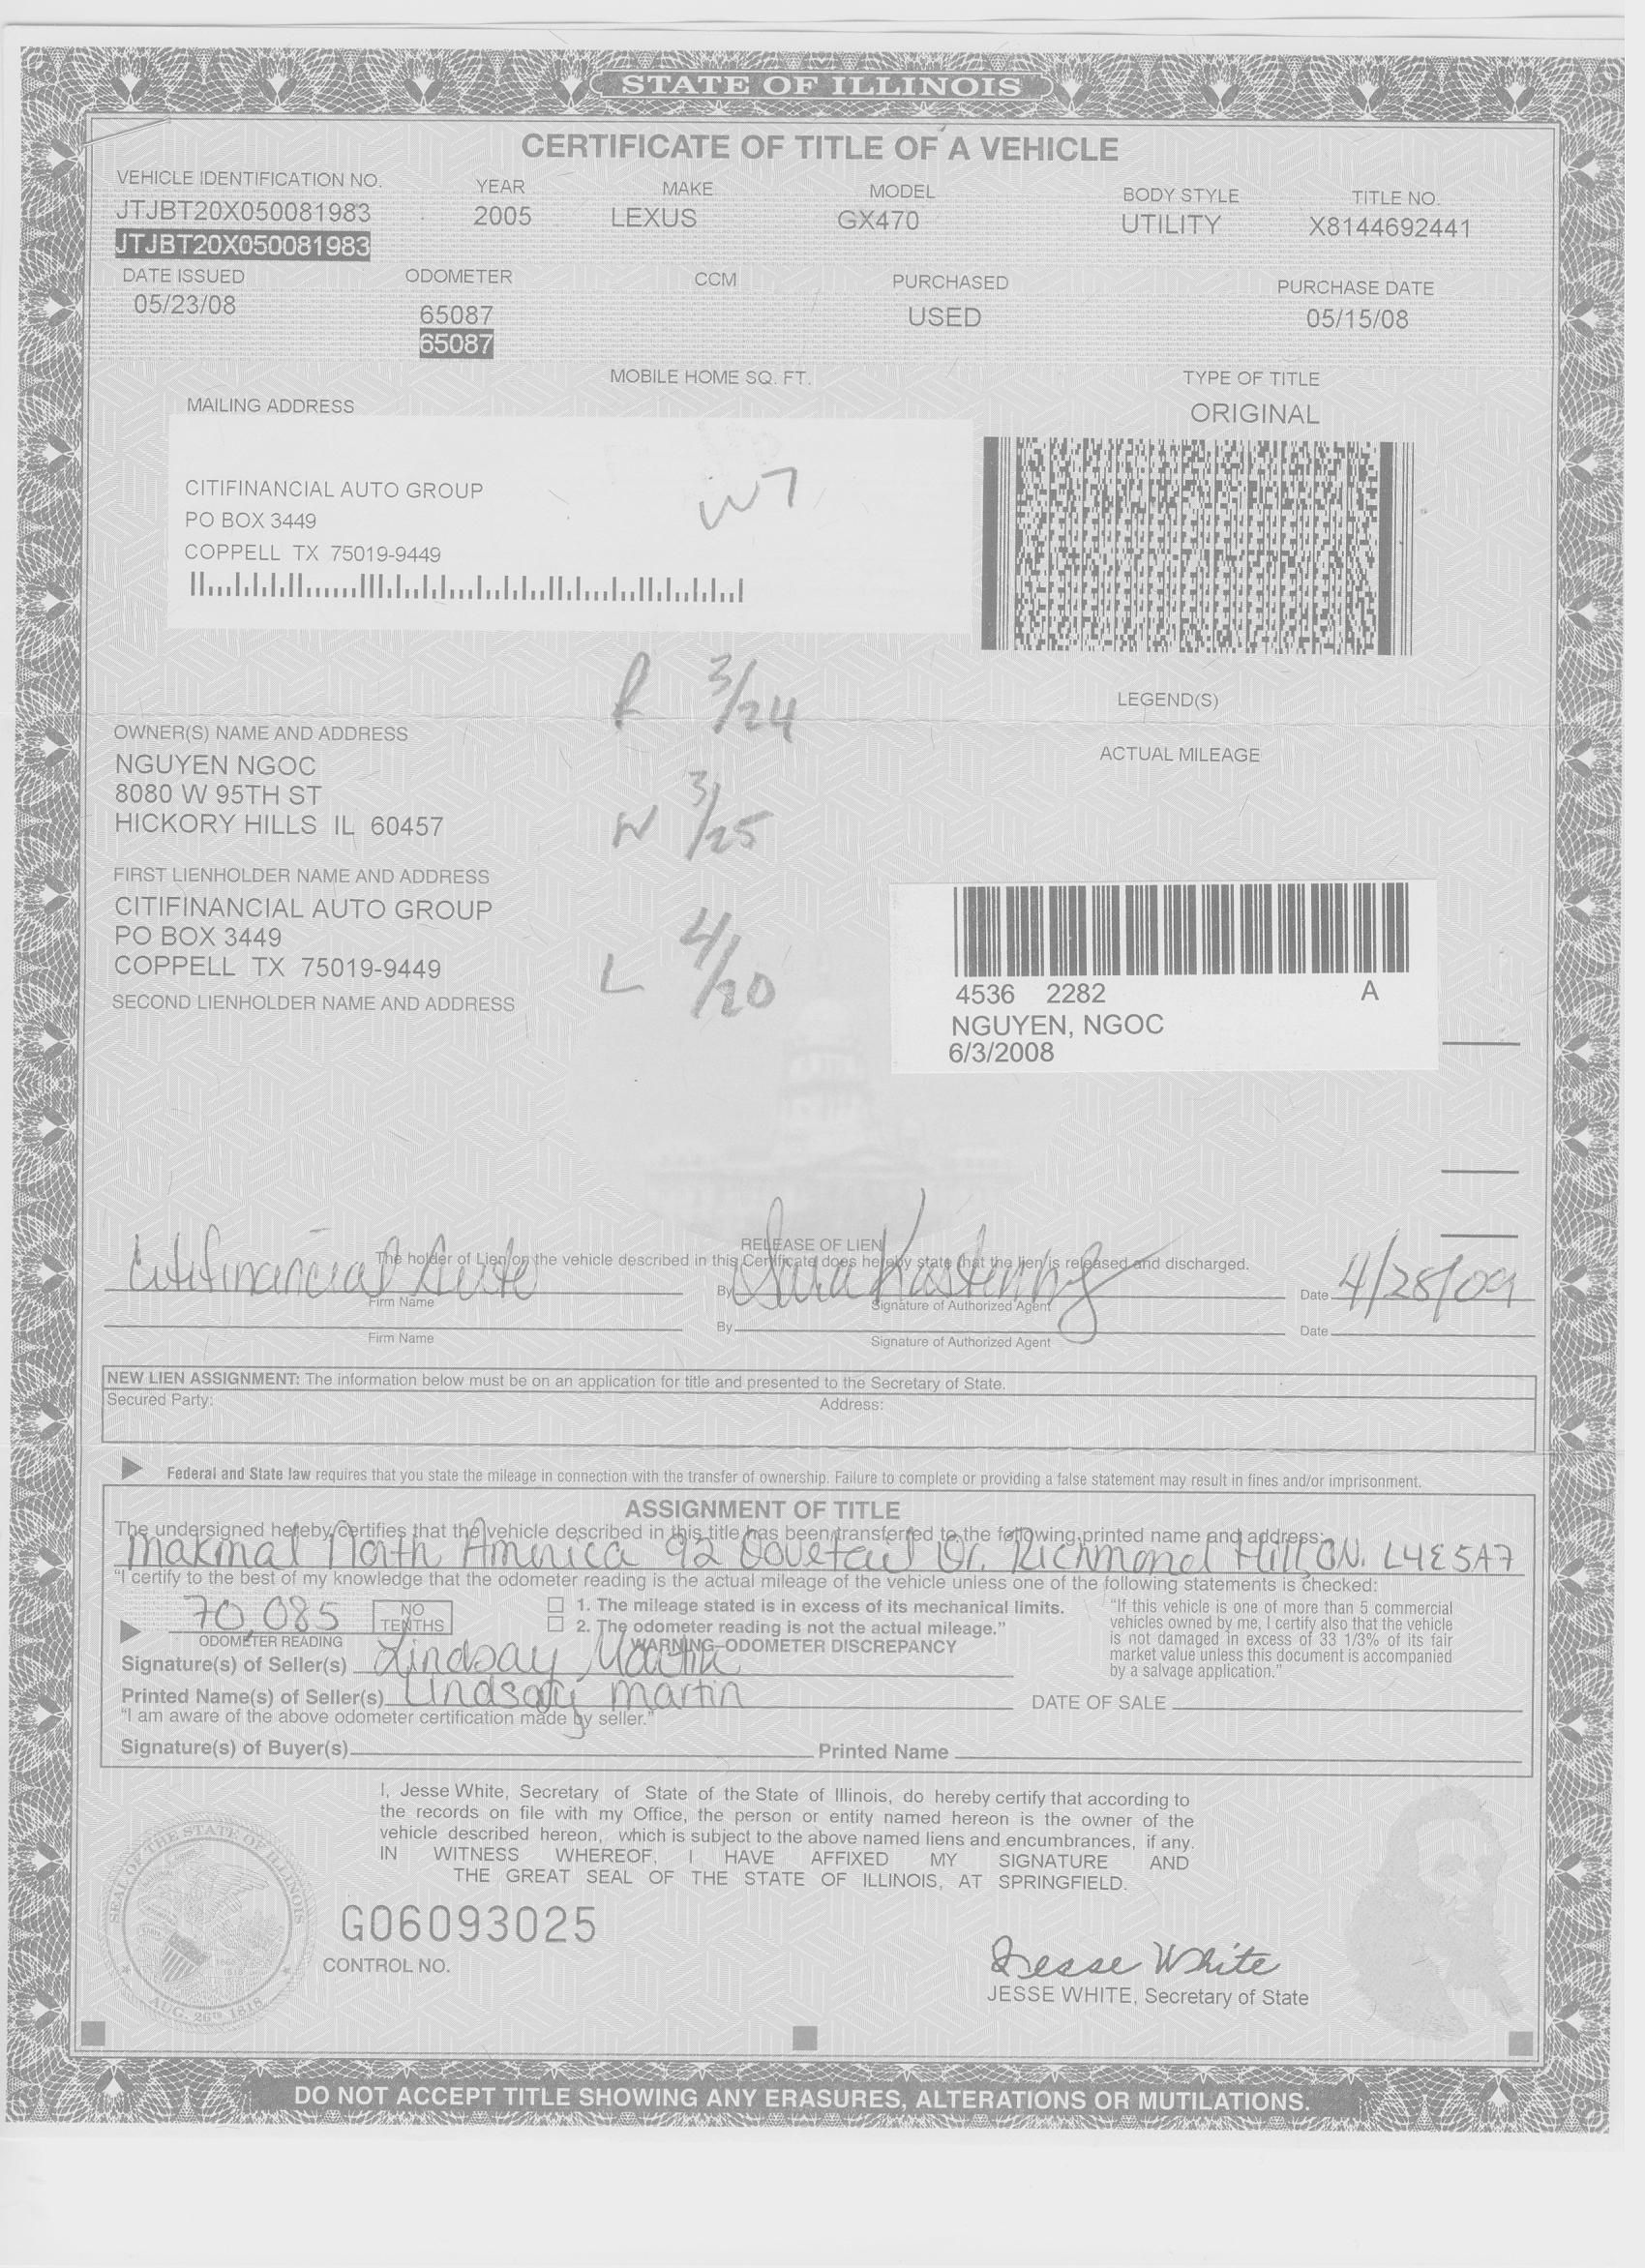 STATE OF ILLINOIS
CERTIFICATE OF TITLE OF A VEHICLE
VEHICLE IDENTIFICATION NO. YEAR MAKE MODEL BODY STYLE TITLE NO.
JTJBT20X050081983 2005 LEXUS GX470 UTILITY X8144692441
JTJBT20X050081983
DATE ISSUED ODOMETER CCM PURCHASED PURCHASE DATE
05/23/08 65087 USED 05/15/08
65087
MOBILE HOME SQ. FT. TYPE OF TITLE
MAILING ADDRESS ORIGINAL
CITIFINANCIAL AUTO GROUP
PO BOX 3449
COPPELL TX 75019-9449
R 3/24
LEGEND(S)
OWNER(S) NAME AND ADDRESS
ACTUAL MILEAGE
NGUYEN NGOC
8080 W 95TH ST
HICKORY HILLS IL 60457
N 3/25
FIRST LIENHOLDER NAME AND ADDRESS
CITIFINANCIAL AUTO GROUP
PO BOX 3449
COPPELL TX 75019-9449
L 4/20
SECOND LIENHOLDER NAME AND ADDRESS
4536 2282 A
NGUYEN, NGOC
6/3/2008
RELEASE OF LIEN
The holder of Lien on the vehicle described in this Certificate does hereby state that the lien is released and discharged.
Citifinancial Auto By Sara Date 4/28/09
Firm Name Signature of Authorized Agent
By Date
Firm Name Signature of Authorized Agent
NEW LIEN ASSIGNMENT: The information below must be on an application for title and presented to the Secretary of State.
Secured Party: Address:
Federal and State law requires that you state the mileage in connection with the transfer of ownership. Failure to complete or providing a false statement may result in fines and/or imprisonment.
ASSIGNMENT OF TITLE
The undersigned hereby certifies that the vehicle described in this title has been transferred to the following printed name and address:
Makmal North America 92 Dovetail Dr. Richmond Hill, ON. L4E5A7
"I certify to the best of my knowledge that the odometer reading is the actual mileage of the vehicle unless one of the following statements is checked:
70,085 NO TENTHS
ODOMETER READING
1. The mileage stated is in excess of its mechanical limits.
2. The odometer reading is not the actual mileage."
WARNING-ODOMETER DISCREPANCY
"If this vehicle is one of more than 5 commercial
vehicles owned by me, I certify also that the vehicle
is not damaged in excess of 33 1/3% of its fair
market value unless this document is accompanied
by a salvage application."
Signature(s) of Seller(s) Lindsay Martin
Printed Name(s) of Seller(s) Lindsay Martin DATE OF SALE
"I am aware of the above odometer certification made by seller."
Signature(s) of Buyer(s) Printed Name
I, Jesse White, Secretary of State of the State of Illinois, do hereby certify that according to
the records on file with my Office, the person or entity named hereon is the owner of the
vehicle described hereon, which is subject to the above named liens and encumbrances, if any.
IN WITNESS WHEREOF, I HAVE AFFIXED MY SIGNATURE AND
THE GREAT SEAL OF THE STATE OF ILLINOIS, AT SPRINGFIELD.
SEAL OF THE STATE OF ILLINOIS
AUG. 26TH 1818
G06093025
CONTROL NO.
Jesse White
JESSE WHITE, Secretary of State
DO NOT ACCEPT TITLE SHOWING ANY ERASURES, ALTERATIONS OR MUTILATIONS.